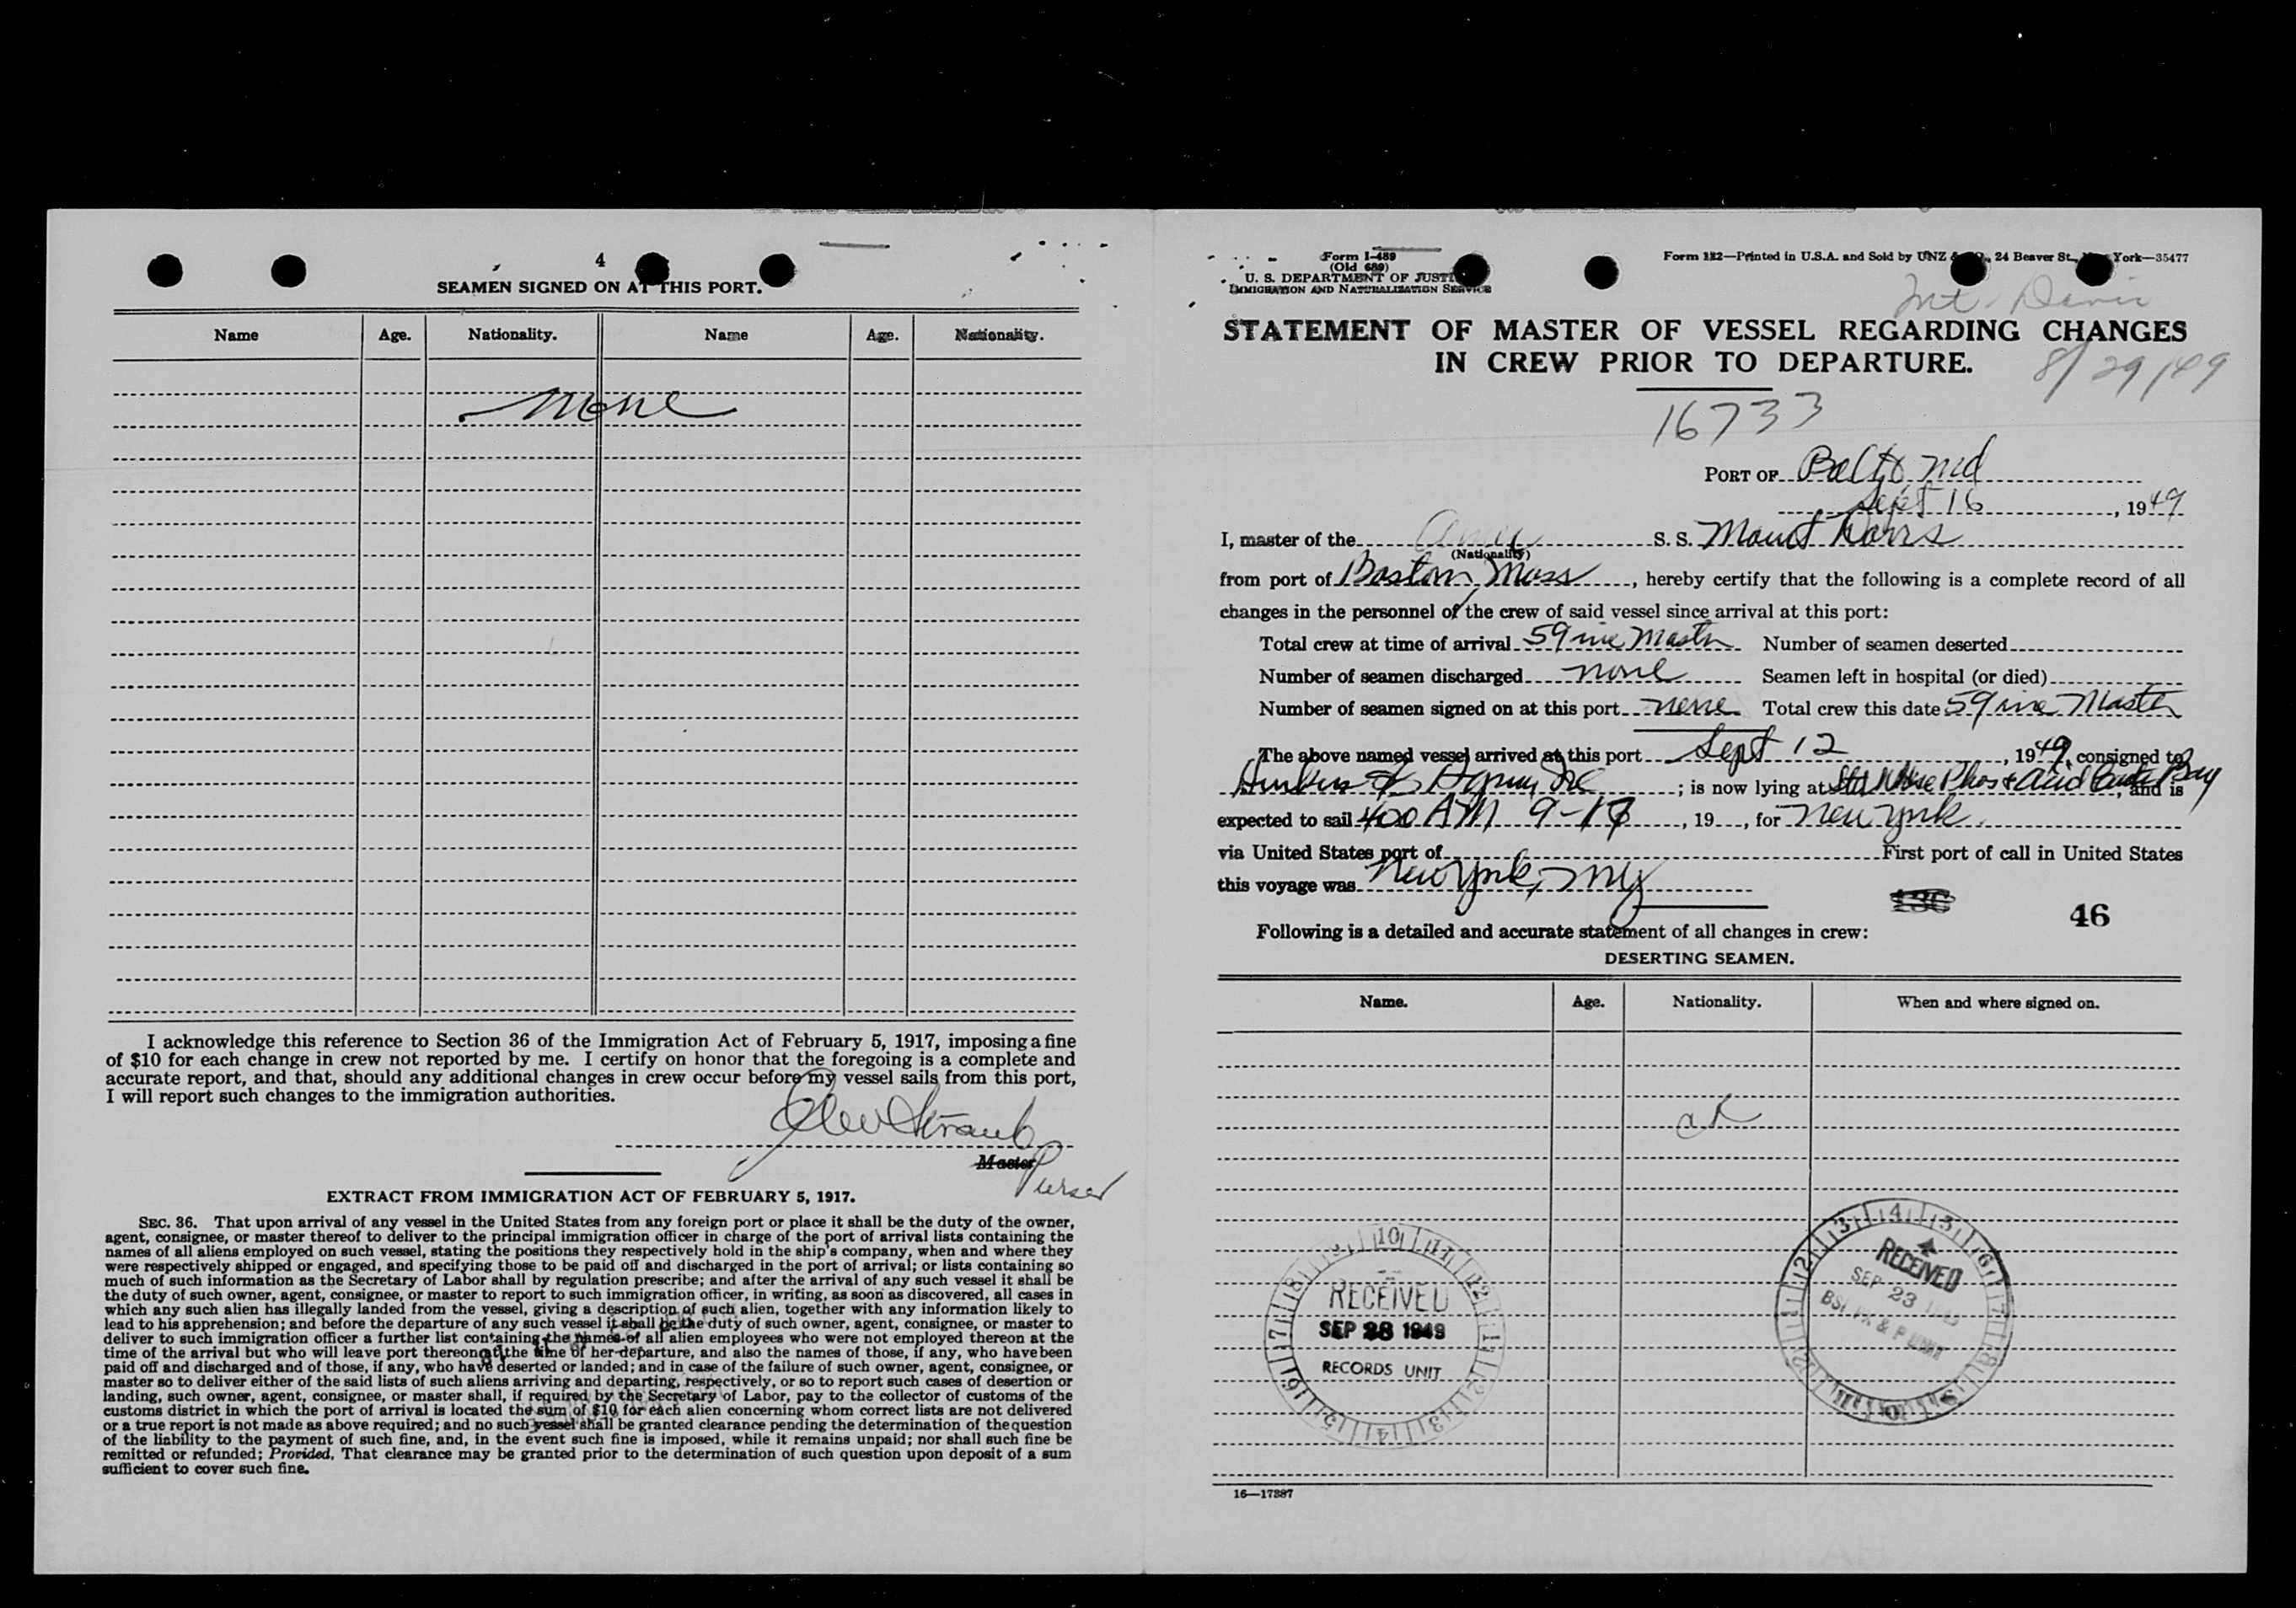 4
SEAMEN SIGNED ON AT THIS PORT.
Name Age. Nationality. Name Age. Nationality.
None
I acknowledge this reference to Section 36 of the Immigration Act of February 5, 1917, imposing a fine
of $10 for each change in crew not reported by me. I certify on honor that the foregoing is a complete and
accurate report, and that, should any additional changes in crew occur before my vessel sails from this port,
I will report such changes to the immigration authorities.
Straub
Master
Purser
EXTRACT FROM IMMIGRATION ACT OF FEBRUARY 5, 1917.
SEC. 36. That upon arrival of any vessel in the United States from any foreign port or place it shall be the duty of the owner,
agent, consignee, or master thereof to deliver to the principal immigration officer in charge of the port of arrival lists containing the
names of all aliens employed on such vessel, stating the positions they respectively hold in the ship's company, when and where they
were respectively shipped or engaged, and specifying those to be paid off and discharged in the port of arrival; or lists containing so
much of such information as the Secretary of Labor shall by regulation prescribe; and after the arrival of any such vessel it shall be
the duty of such owner, agent, consignee, or master to report to such immigration officer, in writing, as soon as discovered, all cases in
which any such alien has illegally landed from the vessel, giving a description of such alien, together with any information likely to
lead to his apprehension; and before the departure of any such vessel it shall be the duty of such owner, agent, consignee, or master to
deliver to such immigration officer a further list containing the names of all alien employees who were not employed thereon at the
time of the arrival but who will leave port thereon at the time of her departure, and also the names of those, if any, who have been
paid off and discharged and of those, if any, who have deserted or landed; and in case of the failure of such owner, agent, consignee, or
master so to deliver either of the said lists of such aliens arriving and departing, respectively, or so to report such cases of desertion or
landing, such owner, agent, consignee, or master shall, if required by the Secretary of Labor, pay to the collector of customs of the
customs district in which the port of arrival is located the sum of $10 for each alien concerning whom correct lists are not delivered
or a true report is not made as above required; and no such vessel shall be granted clearance pending the determination of the question
of the liability to the payment of such fine, and, in the event such fine is imposed, while it remains unpaid; nor shall such fine be
remitted or refunded; Provided, That clearance may be granted prior to the determination of such question upon deposit of a sum
sufficient to cover such fine.
Form I-489
(Old 689)
U. S. DEPARTMENT OF JUSTICE
IMMIGRATION AND NATURALIZATION SERVICE
Form 122—Printed in U.S.A. and Sold by UNZ & CO., 24 Beaver St., New York—35477
Mt Davis
STATEMENT OF MASTER OF VESSEL REGARDING CHANGES
IN CREW PRIOR TO DEPARTURE.
8/29/49
16733
PORT OF Balto, Md
Sept 16, 1949
I, master of the Amer S. S. Mount Davis
(Nationality)
from port of Boston, Mass, hereby certify that the following is a complete record of all
changes in the personnel of the crew of said vessel since arrival at this port:
Total crew at time of arrival 59 inc Master Number of seamen deserted
Number of seamen discharged none Seamen left in hospital (or died)
Number of seamen signed on at this port none Total crew this date 59 inc Master
The above named vessel arrived at this port Sept 12, 1949, consigned to
; is now lying at , and is
expected to sail 400 AM 9-17, 19 , for New York
via United States port of First port of call in United States
this voyage was New York, NY
136 46
Following is a detailed and accurate statement of all changes in crew:
DESERTING SEAMEN.
Name. Age. Nationality. When and where signed on.
RECEIVED
SEP 28 1949
RECORDS UNIT
RECEIVED
SEP 23
16—17387